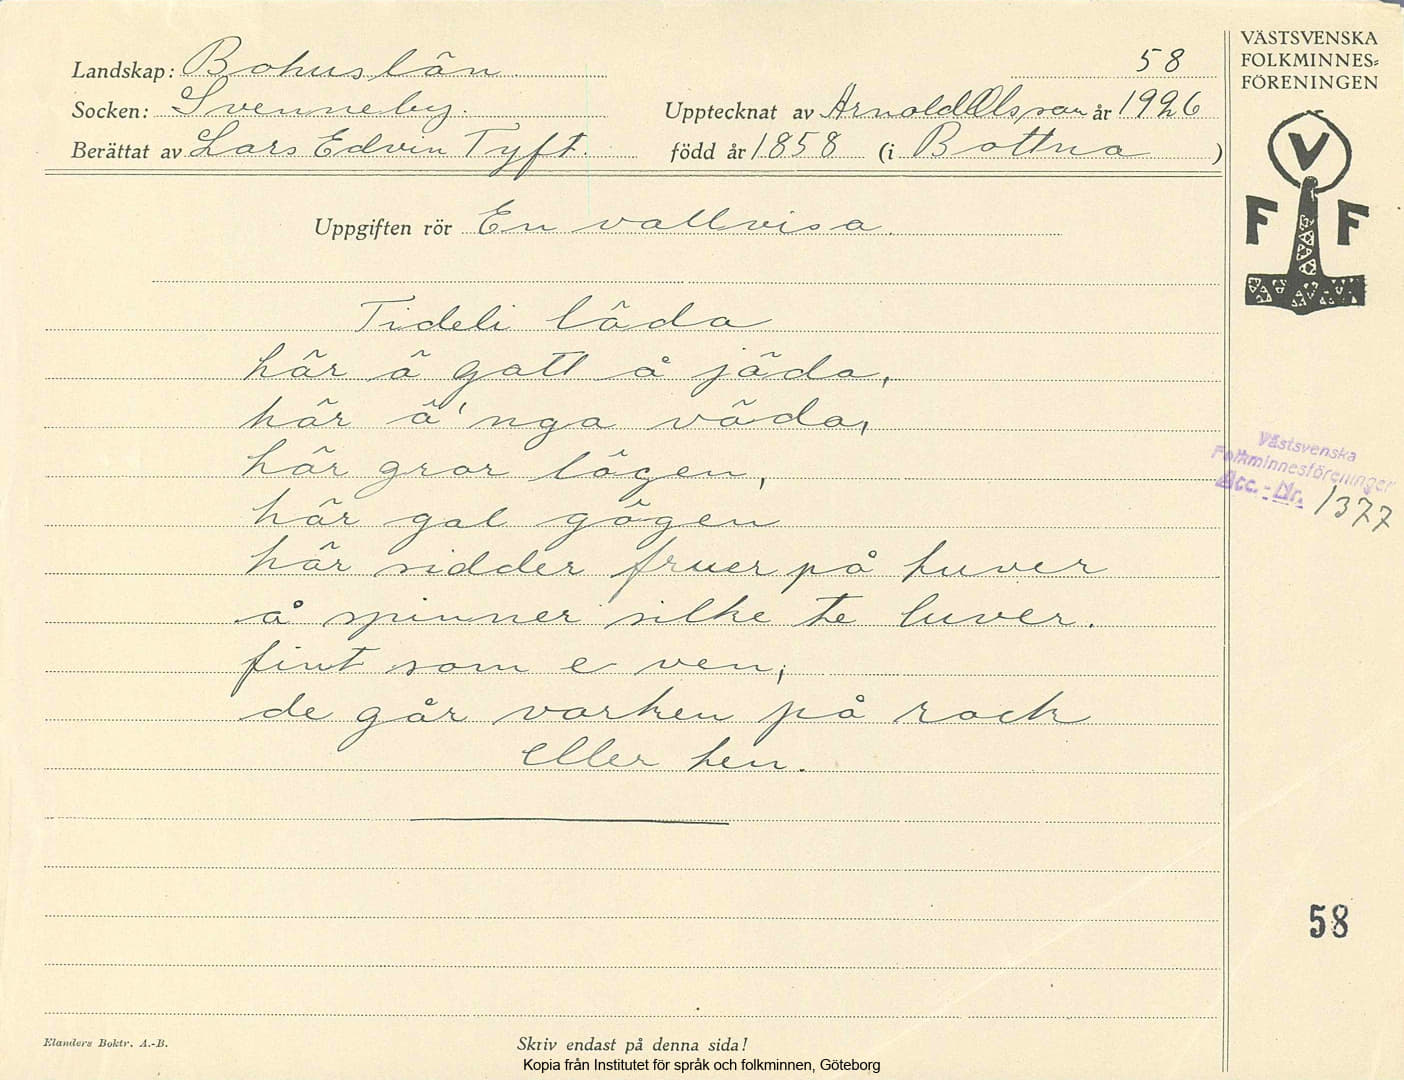 Landskap: Bohuslän
58
Socken: Svenneby.
Upptecknat av Arnold Olsson år 1926
Berättat av Lars Edvin Tyft.
född år 1858 (i Bottna)
Uppgiften rör En vallvisa.
Tideli låda
här ä gatt å jäda,
här ä' nga våda,
här gror lögen,
här gal gögen
här sidder fruer på huver
å spinner silke te luver.
fint som e ven,
de går varken på rock
eller hen.
VÄSTSVENSKA
FOLKMINNES=
FÖRENINGEN
V
F F
Västsvenska
Folkminnesföreningen
Acc.-Nr. 1377
58
Elanders Boktr. A.-B.
Skriv endast på denna sida!
Kopia från Institutet för språk och folkminnen, Göteborg